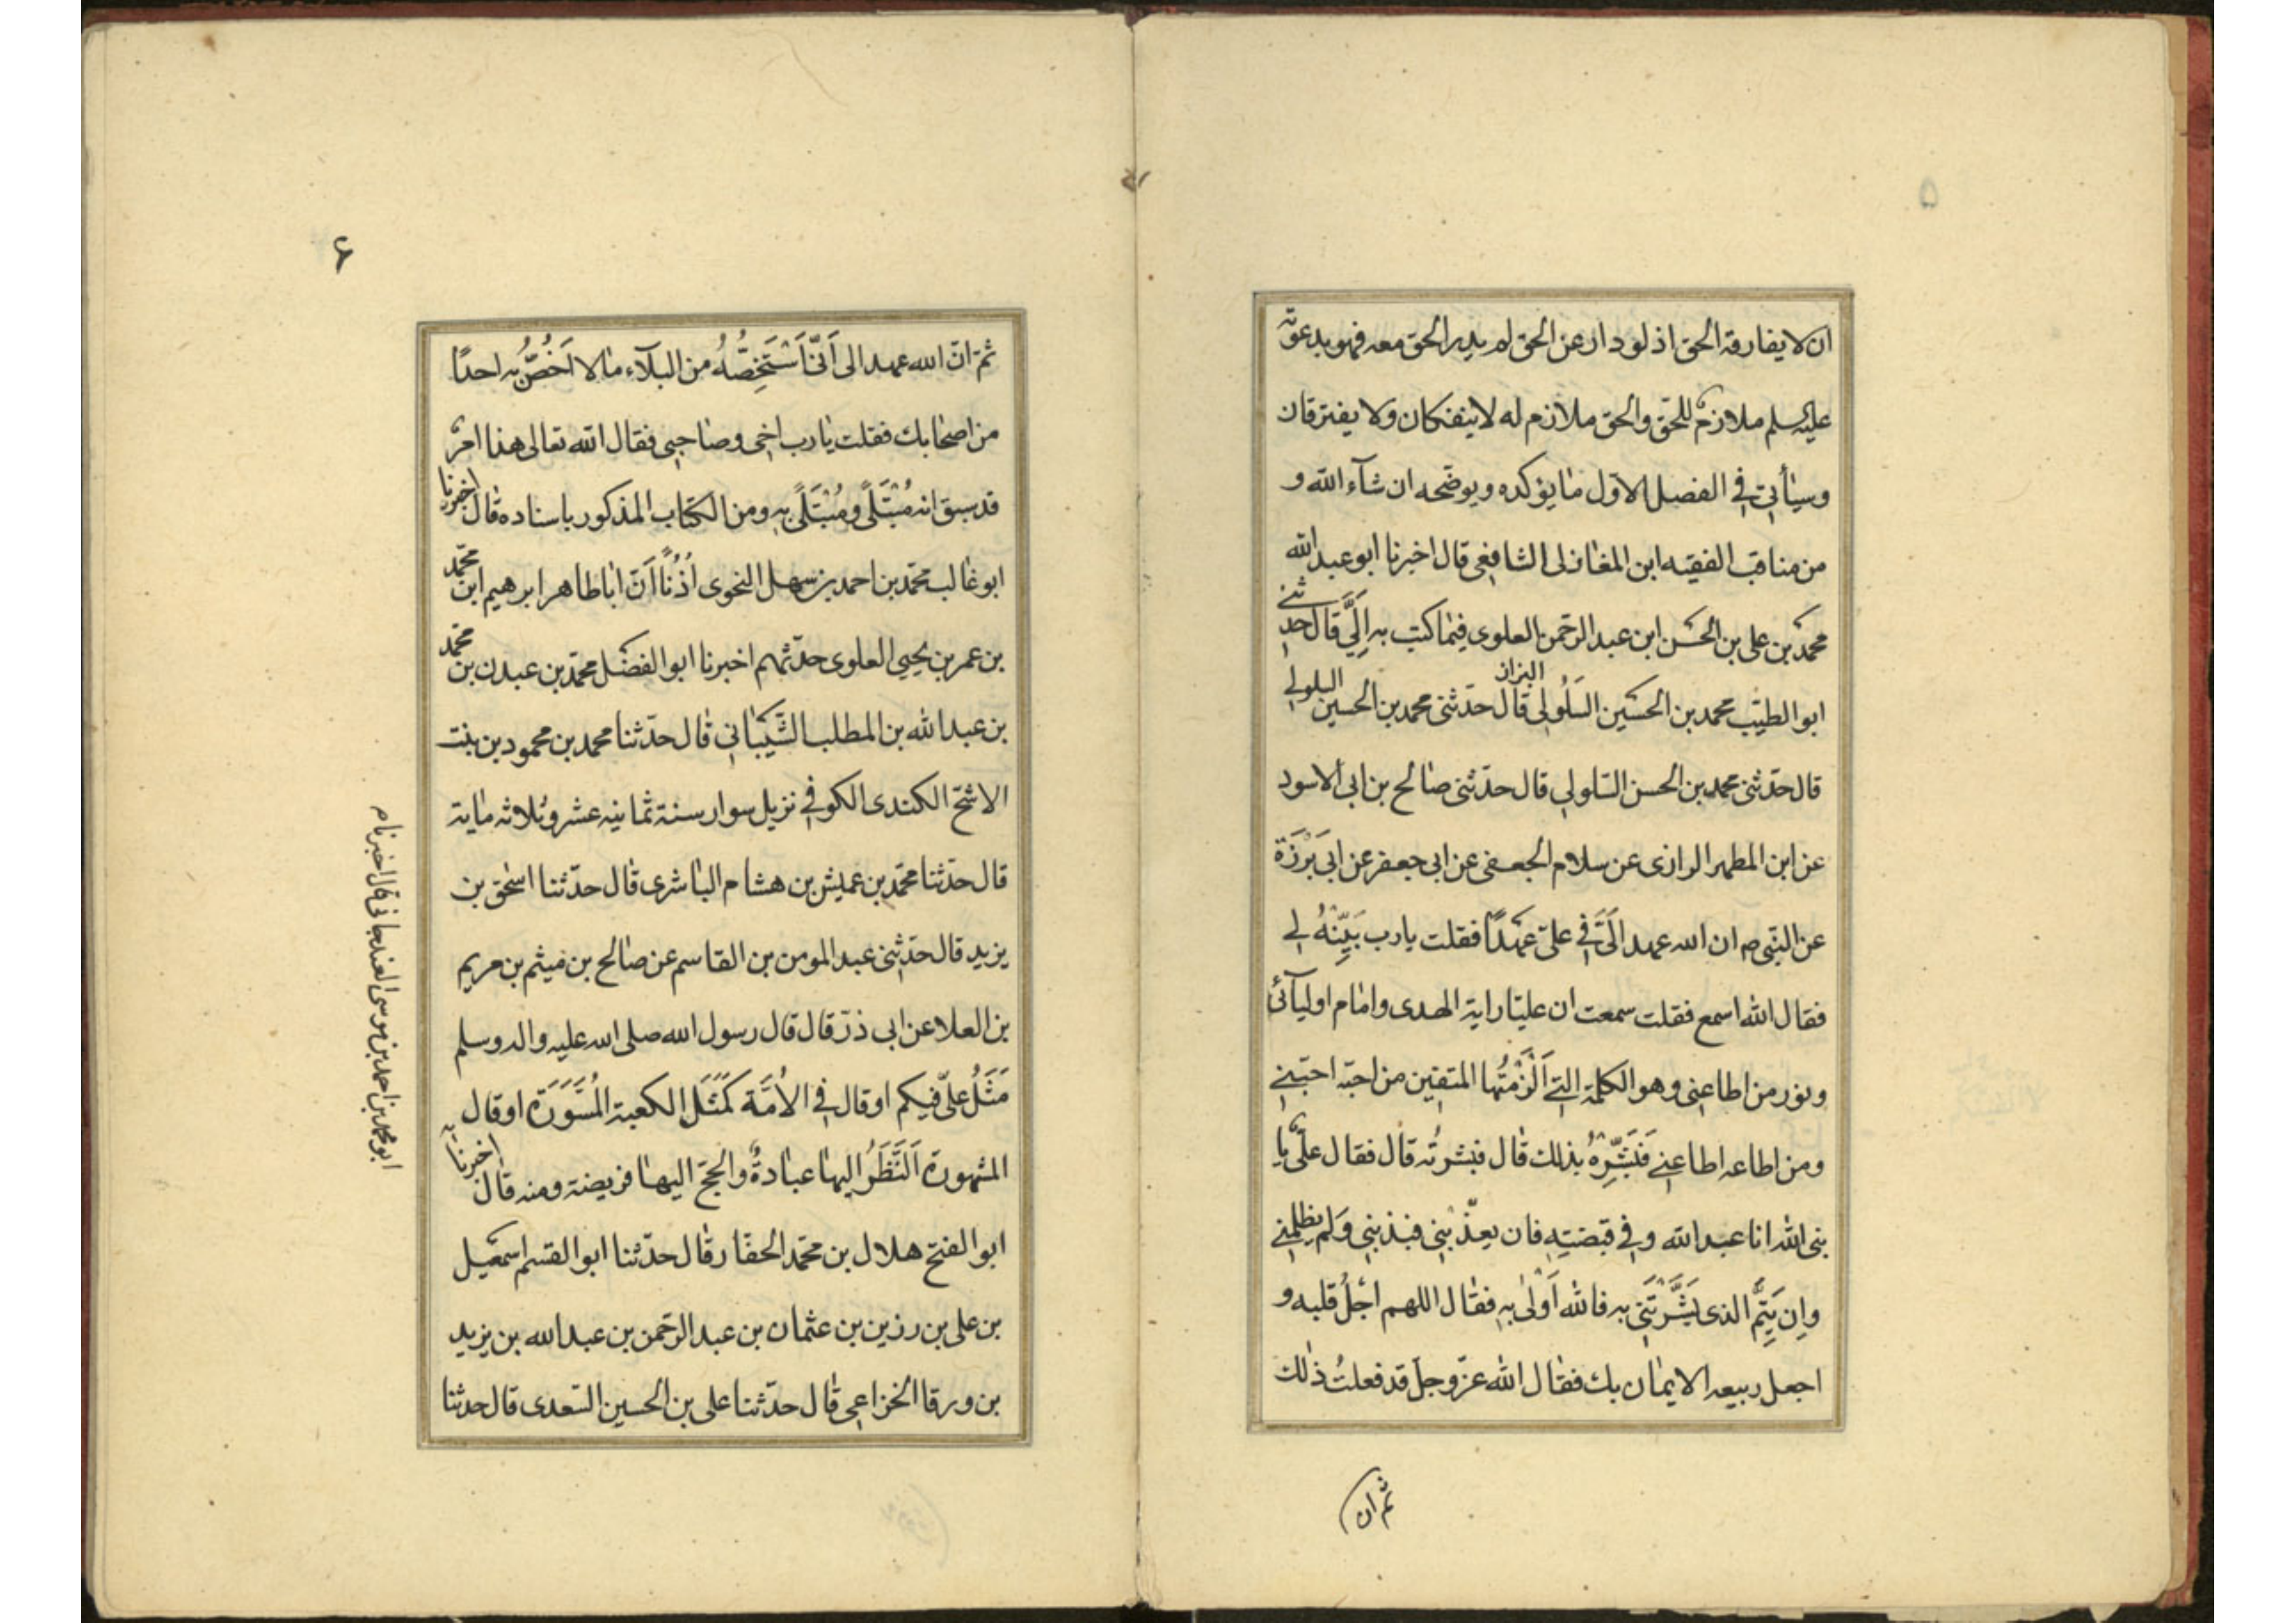 ۵
ان لا يفارقه الحق اذ لو دار عن الحق لم يدر الحق معه فهو بدعوته
عليه سلم ملازمٌ للحّق والحق ملازم له لا ينفكان ولا يفترقان
وسيأتى فى الفصل الاول ما يؤكده ويوضحه ان شآء الله و
من مناقب الفقيه ابن المغازلى الشافعى قال اخبرنا ابو عبد الله
محمد بن على بن الحسن ابن عبد الرحمن العلوى فيما كتب به اِلَيَّ قال حدثنى
ابو الطيّب محمد بن الحسين السَلُولى قال حدّثنى محمد بن الحسين
البزاز
السلولى
قال حدّثنى محمد بن الحسن السلولى قال حدّثنى صالح بن ابى الاسود
عن ابن المطهر الرازى عن سلام الجعفى عن ابى جعفر عن ابى بَرْزَة
عن النبّى ص ان الله عهد الَىَّ فى علىّ عَهْدًا فقلت يا رب بَيِّنْهُ لى
فقال الله اسمع فقلت سمعت ان عليّا راية الهدى وامام اوليآئى
ونور من اطاعنى وهو الكلمة التى اَلْزَمْتُها المتقين من احبّه احبّنى
ومن اطاعه اطاعنى فَبَشِّرْهُ بذلك قال فبشرتُه قال فقال علىٌّ يا
نبى الله انا عبد الله وفى قبضتِهِ فان يعذّبنى فبذنبى وَلَم يظلمنى
وإن يَتِمَّ الذى بَشَّرْتَنى به فالله اَوْلىٰ بِهِ فقال اللهم اجْلُ قلبه و
اجعل ربيعه الايمان بك فقال الله عزّ وجلّ قد فعلتُ ذلك
ثم ان
۶
ثمّ انّ الله عهد الى اَنّى اَسْتَخِصُّهُ من البلآء مالا اَخُصُّ به احدًا
من اصحابك فقلت يا رب اخى وصاحبى فقال الله تعالى هذا امرٌ
قد سبق انه مُبْتَلًى ومُبْتَلًى بِهِ ومن الكتاب المذكور باسناده قال اخبرنا
ابو غالب محمّد بن احمد بن سهل النحوى اُذُنًا اَنّ ابا طاهر ابرهيم ابن محمّد
بن عمر بن يحيى العلوى حدّثهم اخبرنا ابو الفضل محمّد بن عبد بن محمّد
بن عبد الله بن المطلب الشَّيبانى قال حدّثنا محمد بن محمود بن بنت
الاشجّ الكندى الكوفى نزيل سوار سنة ثمانيه عشر وثلاثه ماية
قال حدّثنا محمّد بن عميش بن هشام الباشرى قال حدّثنا اسحٰق بن
يزيد قال حدّثنى عبد المومن بن القاسم عن صالح بن ميثم بن مريم
بن العلا عن ابى ذرّ قال قال رسول الله صلى الله عليه واله وسلم
مَثَلُ علىّ فيكم او قال فى الاُمَّة كَمَثَلِ الكعبة المُسَوَّرَة او قال
المشهورة اَلنَّظَرُ اليها عبادةٌ والحجّ اليها فريضة ومنه قال اخبرنا
ابو الفتح هلال بن محمّد الحفّار قال حدّثنا ابو القسم اسمعيل
بن على بن رزين بن عثمان بن عبد الرحمن بن عبد الله بن يزيد
بن ورقا الخزاعى قال حدّثنا على بن الحسين السّعدى قال حدثنا
ابو محمد بن احمد بن موسى الغندجانى قال اخبرنا م